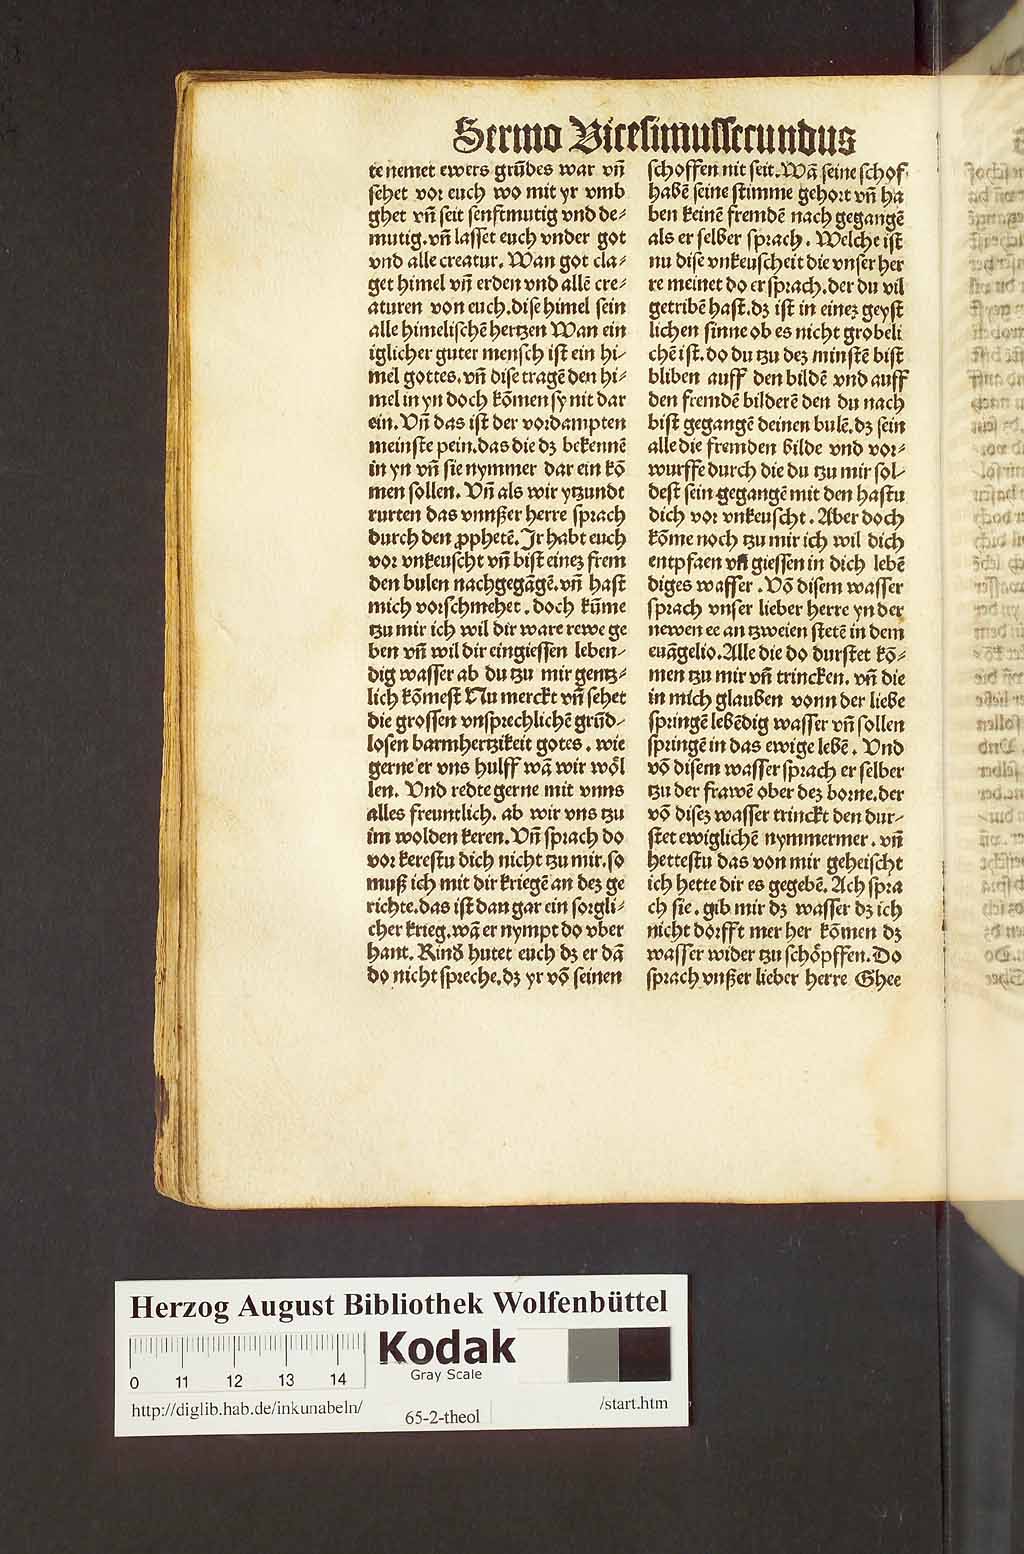 Sermo Vicesimussecundus
te nemet ewers grūdes war vñ
sehet vor euch wo mit yr vmb
ghet vñ seit senftmutig vnd de⸗
mutig. vñ lasset euch vnder got
vnd alle creatur. Wan got cla⸗
get himel vñ erden vnd allē cre⸗
aturen von euch. dise himel sein
alle himelischē hertzen Wan ein
iglicher guter mensch ist ein hi⸗
mel gottes. vñ dise tragē den hi⸗
mel in yn doch kōmen sy nit dar
ein. Vñ das ist der vordampten
meinste pein. das die dʒ bekennē
in yn vñ sie nymmer dar ein kō
men sollen. Vñ als wir ytzundt
rurten das vnnßer herre sprach
durch den ꝓphetē. Jr habt euch
vor vnkeuscht vñ bist eineʒ frem
den bulen nachgegāgē. vñ hast
mich vorschmehet. doch kūme
tzu mir ich wil dir ware rewe ge
ben vñ wil dir eingiessen leben⸗
dig wasser ab du tzu mir gentz⸗
lich kōmest Nu merckt vñ sehet
die grossen vnsprechlichē grūd⸗
losen barmhertzikeit gotes. wie
gerne er vns hulff wā wir wöl
len. Vnd redte gerne mit vnns
alles freuntlich. ab wir vns tzu
im wolden keren. Vñ sprach do
vor kerestu dich nicht tzu mir. so
muß ich mit dir kriegē an deʒ ge
richte. das ist dan gar ein sorgli⸗
cher krieg. wā er nympt do vber
hant. Rind̄ hutet euch dʒ er dā
do nicht spreche. dʒ yr vō seinen
schoffen nit seit. Wā seine schof⸗
habē seine stimme gehort vñ ha
ben keinē fremdē nach gegangē
als er selber sprach. Welche ist
nu dise vnkeuscheit die vnser her
re meinet do er sprach. der du vil
getribē hast. dʒ ist in eineʒ geyst
lichen sinne ob es nicht grobeli
chē ist. do du tzu deʒ minstē bist
bliben auff den bildē vnd auff
den fremdē bilderē den du nach
bist gegangē deinen bulē. dʒ sein
alle die fremden bilde vnd vor⸗
wurffe durch die du tzu mir sol⸗
dest sein gegangē mit den hastu
dich vor vnkeuscht. Aber doch
kōme noch tzu mir ich wil dich
entpfaen vñ giessen in dich lebē
diges wasser. Vō disem wasser
sprach vnser lieber herre yn der
newen ee an tzweien stetē in dem
euāgelio. Alle die do durstet kō⸗
men tzu mir vñ trincken. vñ die
in mich glauben vonn der liebe
springē lebēdig wasser vñ sollen
springē in das ewige lebē. Vnd
vō disem wasser sprach er selber
tzu der frawē ober deʒ borne. der
vō diseʒ wasser trinckt den dur⸗
stet ewiglichē nymmermer. vñ
hettestu das von mir geheischt
ich hette dir es gegebē. Ach spra
ch sie. gib mir dʒ wasser dʒ ich
nicht dörfft mer her kōmen dʒ
wasser wider tzu schöpffen. Do
sprach vnßer lieber herre Ghee
Herzog August Bibliothek Wolfenbüttel
Kodak
Gray Scale
0 11 12 13 14
http://diglib.hab.de/inkunabeln/
65-2-theol
/start.htm